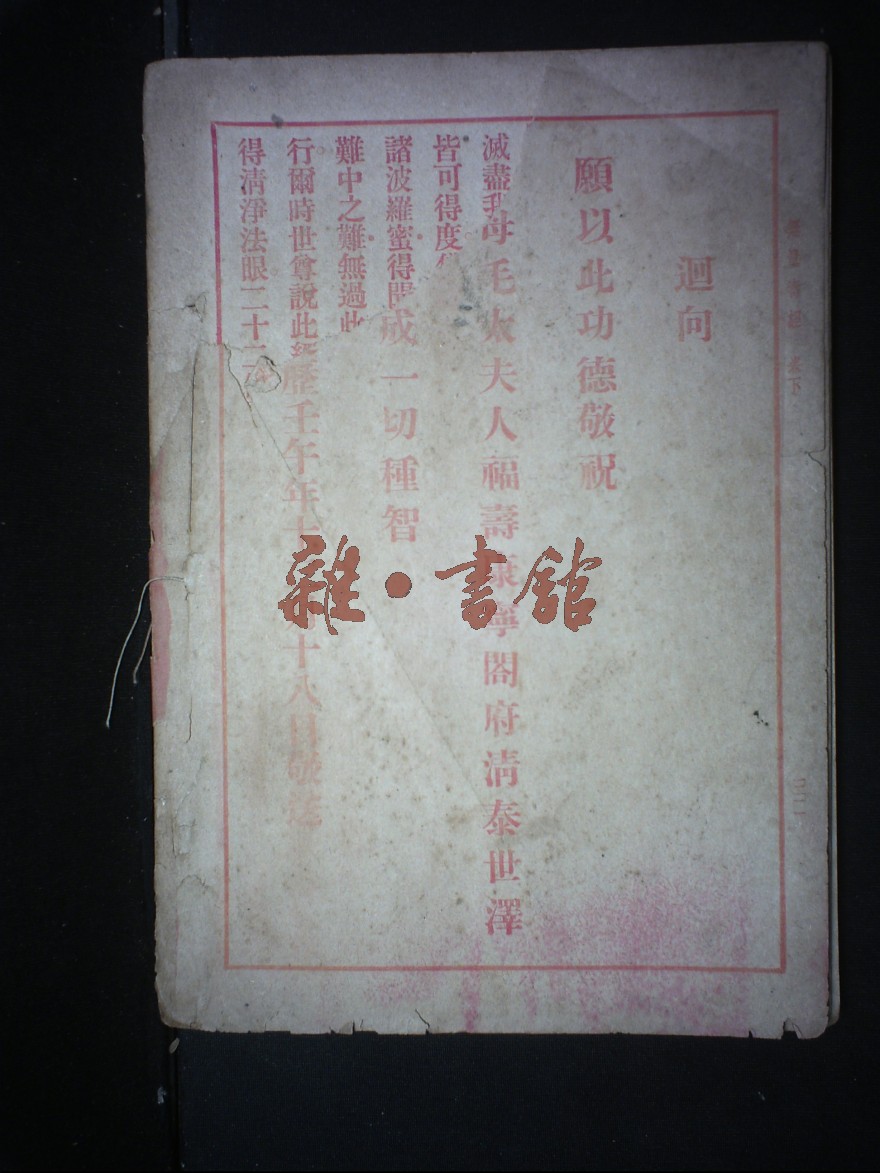 迴向
願以此功德敬祝
滅盡我母毛太夫人福壽康寧閤府清泰世澤
皆可得度
諸波羅蜜得聞成一切種智
難中之難無過此
行爾時世尊說此經歷壬午年十 十八日敬送
得清淨法眼二十二
雜·書館